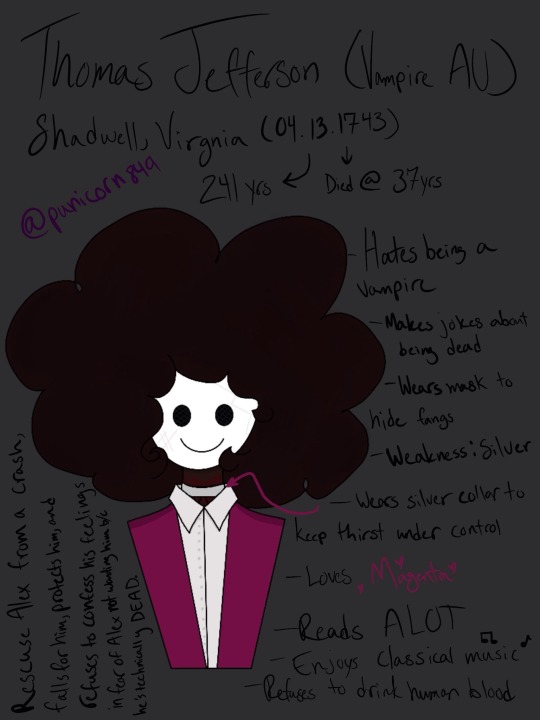 Thomas Jefferson (Vampire AU)
Shadwell, Virgnia (04.13.1743)
241 yrs
Died @ 37yrs
@punicorn849
- Hates being a
vampire
- Makes jokes about
being dead
- Wears mask to
hide fangs
- Weakness: Silver
- Wears silver collar to
keep thirst under control
- Loves Maganta
- Reads ALOT
- Enjoys classical music
- Refuses to drink human blood
Rescuse Alex from a crash,
falls for him, protects him, and
refuses to confess his feelings
in fear of Alex not wanting him b/c
he's technically DEAD.